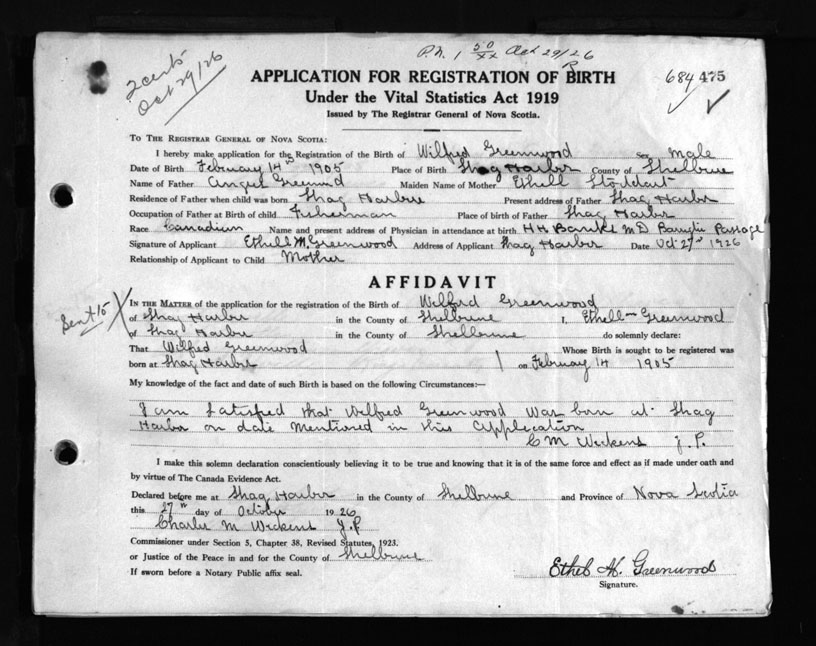 P.N. 1 50/xx Oct 29/26
2 cents
Oct 29/26
APPLICATION FOR REGISTRATION OF BIRTH
R
684 475
Under the Vital Statistics Act 1919
Issued by The Registrar General of Nova Scotia.
To The Registrar General of Nova Scotia:
I hereby make application for the Registration of the Birth of Wilfred Greenwood Sex Male
Date of Birth February 14th 1905 Place of Birth Shag Harbor County of Shelburne
Name of Father Greenwood Maiden Name of Mother Ethell Stoddart
Residence of Father when child was born Shag Harbor Present address of Father Shag Harbor
Occupation of Father at Birth of child Fisherman Place of birth of Father Shag Harbor
Race Canadian Name and present address of Physician in attendance at birth H H Banks M D Passage
Signature of Applicant Ethell M. Greenwood Address of Applicant Shag Harbor Date Oct 27th 1926
Relationship of Applicant to Child Mother
AFFIDAVIT
Sent 15
In the Matter of the application for the registration of the Birth of Wilfred Greenwood
of Shag Harbor in the County of Shelburne I, Ethell Greenwood
of Shag Harbor in the County of Shelburne do solemnly declare:
That Wilfred Greenwood Whose Birth is sought to be registered was
born at Shag Harbor on February 14 1905
My knowledge of the fact and date of such Birth is based on the following Circumstances:—
I am Satisfied that Wilfred Greenwood was born at Shag
Harbor on date mentioned in this Application
C M Wickens J.P.
I make this solemn declaration conscientiously believing it to be true and knowing that it is of the same force and effect as if made under oath and
by virtue of The Canada Evidence Act.
Declared before me at Shag Harbor in the County of Shelburne and Province of Nova Scotia
this 27th day of October 1926
Charles M Wickens J.P
Commissioner under Section 5, Chapter 38, Revised Statutes, 1923.
or Justice of the Peace in and for the County of Shelburne
If sworn before a Notary Public affix seal.
Ethel M. Greenwood
Signature.